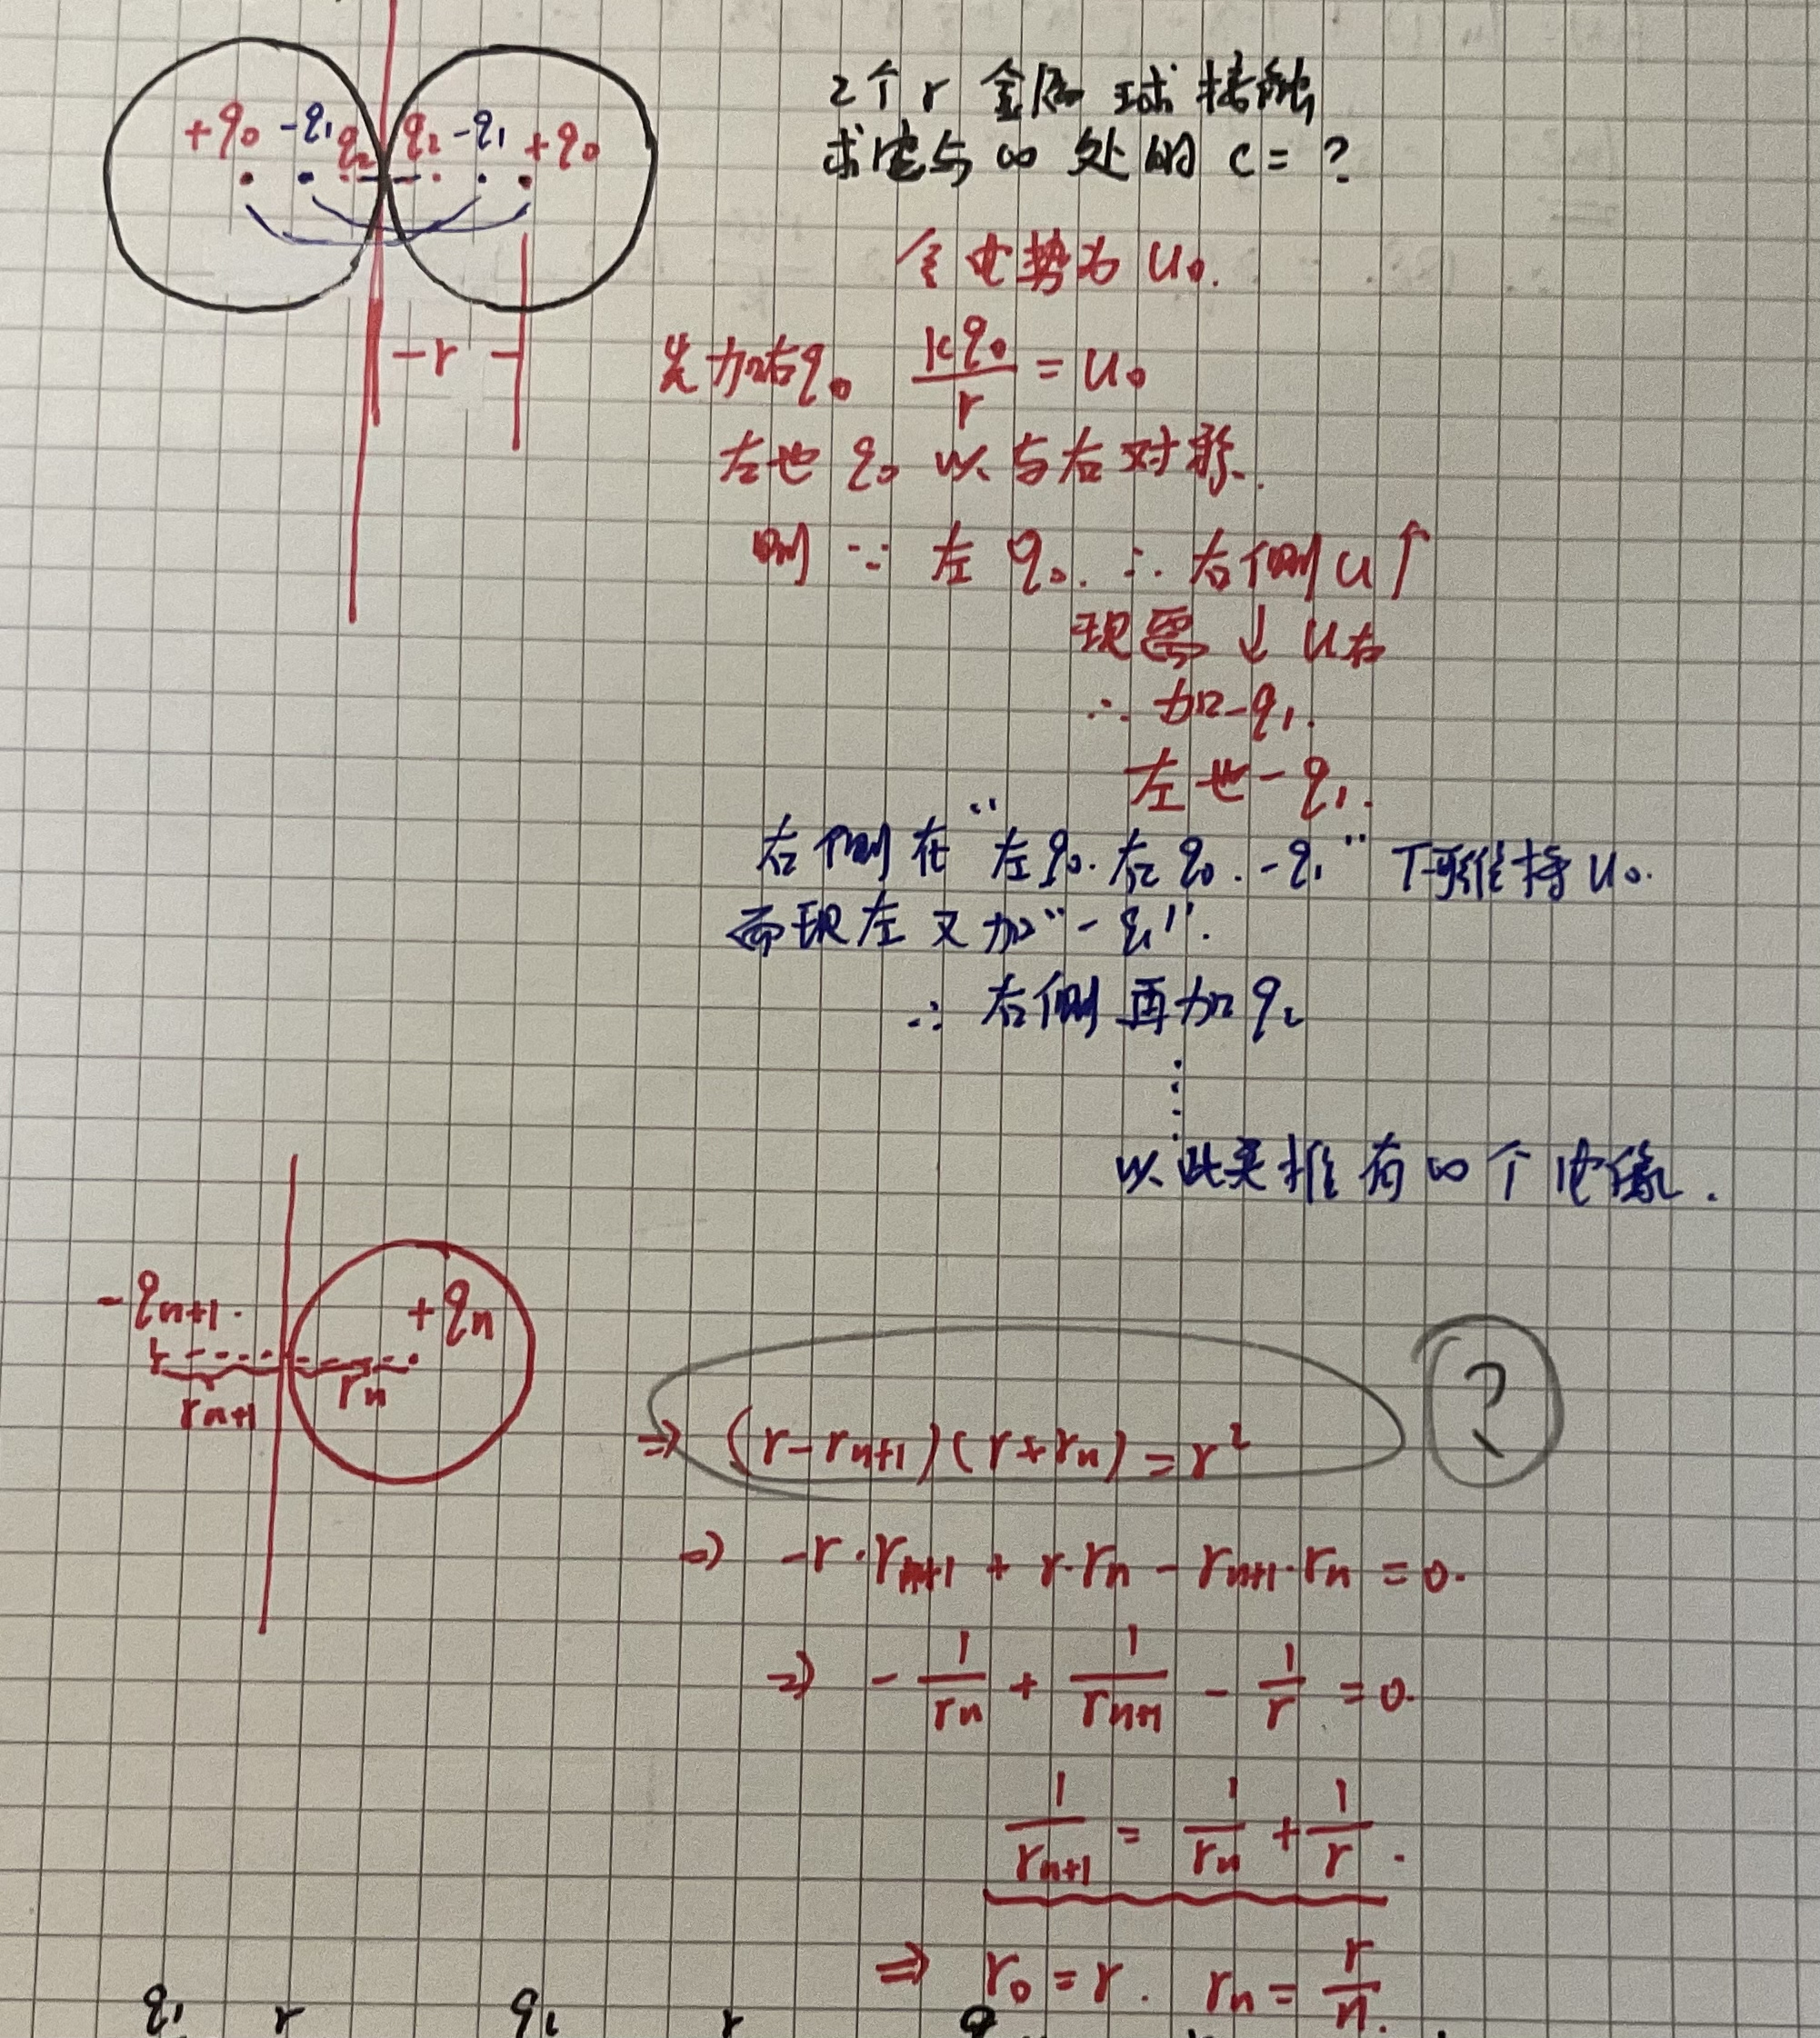 +q₀ -q₁ q₂ q₂ -q₁ +q₀
2个r金属球接触
求它与∞处的 C = ?
-r-
令电势为 U₀.
先加右q₀ kq₀/r = U₀
左也 q₀ 以与右对称.
则 ∵ 左 q₀. ∴ 右侧 U↑
现需 ↓ U右
∴ 加-q₁.
左也 -q₁.
右侧在“左q₀.右q₀.-q₁”下可维持U₀.
而现左又加“-q₁”.
∴ 右侧再加 q₂
⋮
以此类推有∞个电像.
-qₙ₊₁. +qₙ
rₙ₊₁ rₙ
⇒ (r-rₙ₊₁)(r+rₙ)=r² ?
⇒ -r·rₙ₊₁ + r·rₙ - rₙ₊₁·rₙ = 0.
⇒ -1/rₙ + 1/rₙ₊₁ - 1/r = 0.
1/rₙ₊₁ = 1/rₙ + 1/r.
⇒ r₀ = r. rₙ = r/n.
q₁ r q₂ r